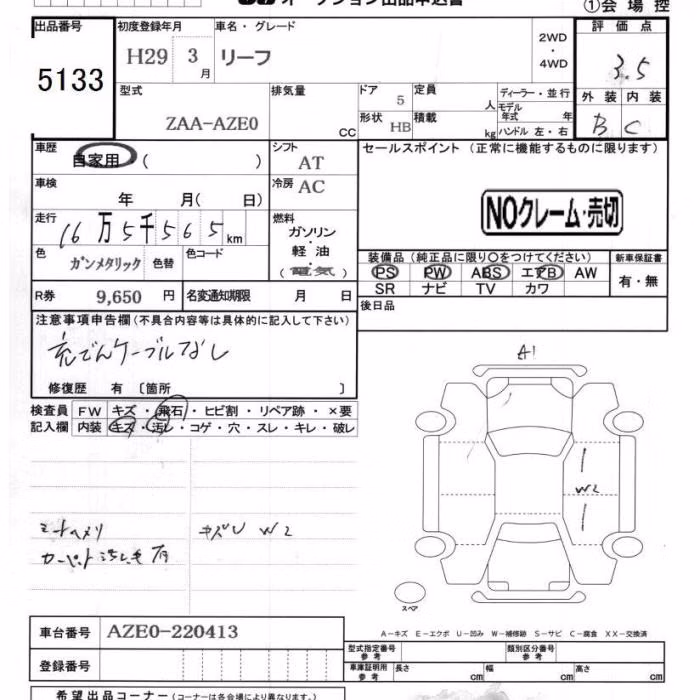 オークション出品申込書
①会 場 控
出品番号 5133
初度登録年月 H29 3月
車名・グレード リーフ
2WD・4WD
評価点 3.5
外装 内装
B C
型式 ZAA-AZE0
排気量 CC
ドア 5
定員 人
形状 HB
積載 kg
ディーラー・並行
モデル年式 年
ハンドル 左・右
車歴 自家用 ( )
シフト AT
車検 年 月( 日)
冷房 AC
走行 16万5千565km
燃料 ガソリン・軽油・(電気)
色 ガンメタリック 色替
色コード
R券 9,650 円
名変通知期限 月 日
セールスポイント (正常に機能するものに限ります)
NOクレーム・売切
装備品 (純正品に限り○をつけてください)
PS PW ABS エアB AW
SR ナビ TV カワ
新車保証書
有・無
後日品
注意事項申告欄 (不具合内容等は具体的に記入して下さい)
充でんケーブルなし
修復歴 有 〔箇所 〕
検査員記入欄
FW キズ・飛石・ヒビ割・リペア跡・×要
内装 キズ・汚レ・コゲ・穴・スレ・キレ・破レ
シートヘタリ
カーペット汚レ
キズU W2
A1
W2
スペア
A－キズ E－エクボ U－凹み W－補修跡 S－サビ C－腐食 XX－交換済
車台番号 AZE0-220413
登録番号
型式指定番号 参考
類別区分番号 参考
車庫証明用 参考 長さ cm 幅 cm 高さ cm
希望出品コーナー (コーナーは各会場により異なります。)